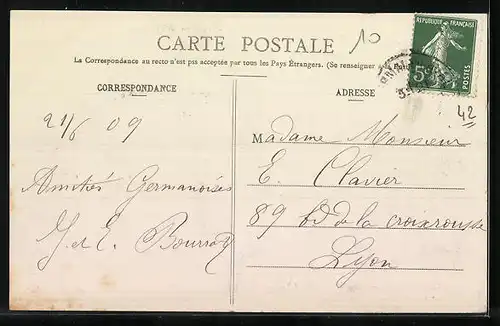 CARTE POSTALE
10
La Correspondance au recto n'est pas acceptée par tous les Pays Étrangers. (Se renseigner
REPUBLIQUE FRANÇAISE
5c
CORRESPONDANCE
ADRESSE
42
21/6 09
Madame Monsieur
E. Clavier
89 Bd de la croixrousse
Lyon
Amitiés Germanoises
J. et E.